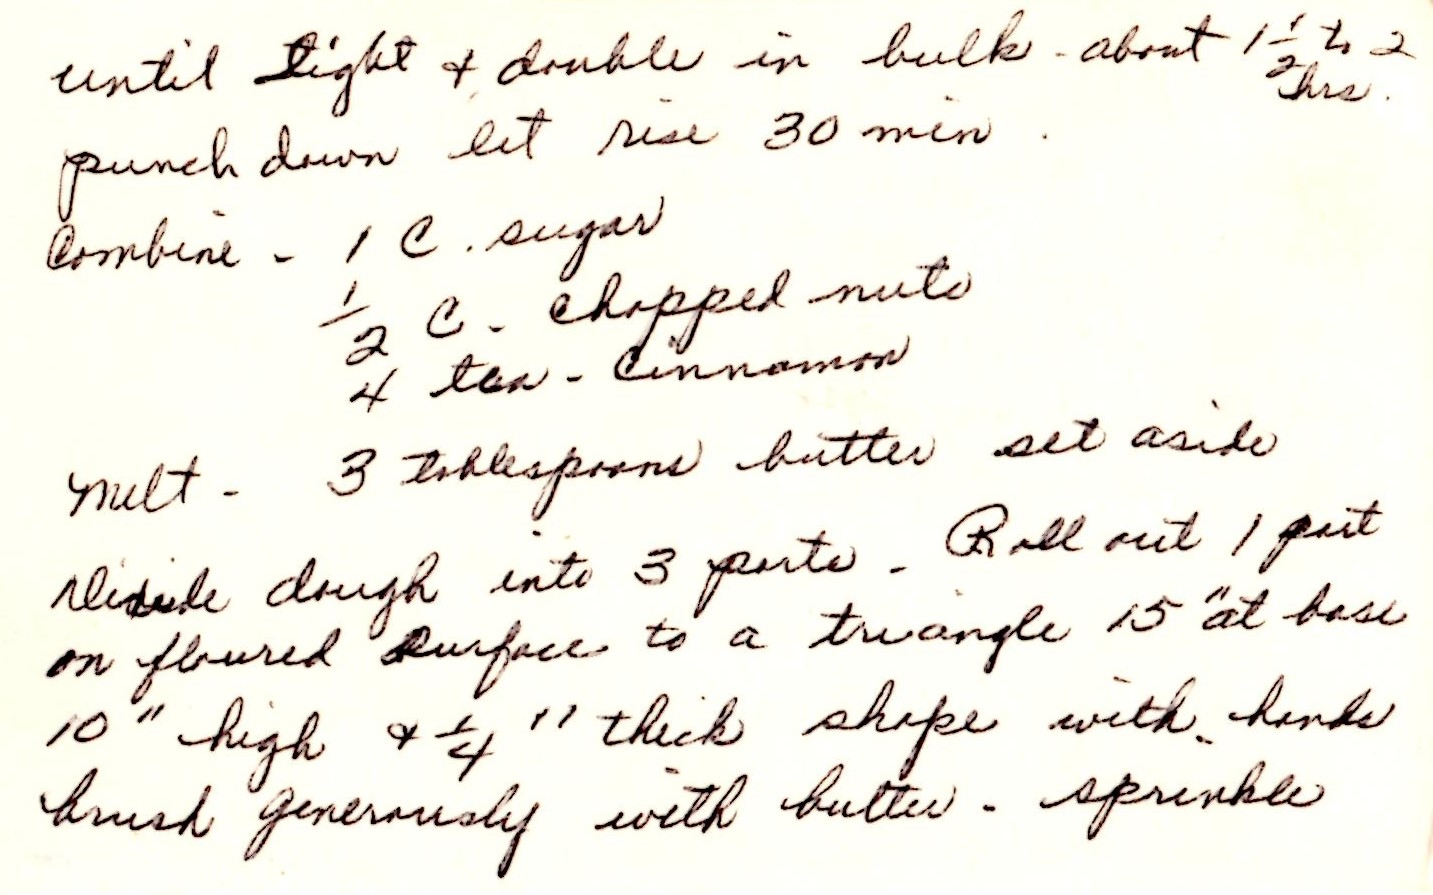 until light & double in bulk - about 1 1/2 to 2
hrs.
punch down let rise 30 min.
Combine - 1 C. sugar
1/2 C. chopped nuts
4 tea - Cinnamon
Melt - 3 tablespoons butter set aside
Divide dough into 3 parts - Roll out 1 part
on floured surface to a triangle 15" at base
10" high & 1/4" thick shape with hands
brush generously with butter - sprinkle